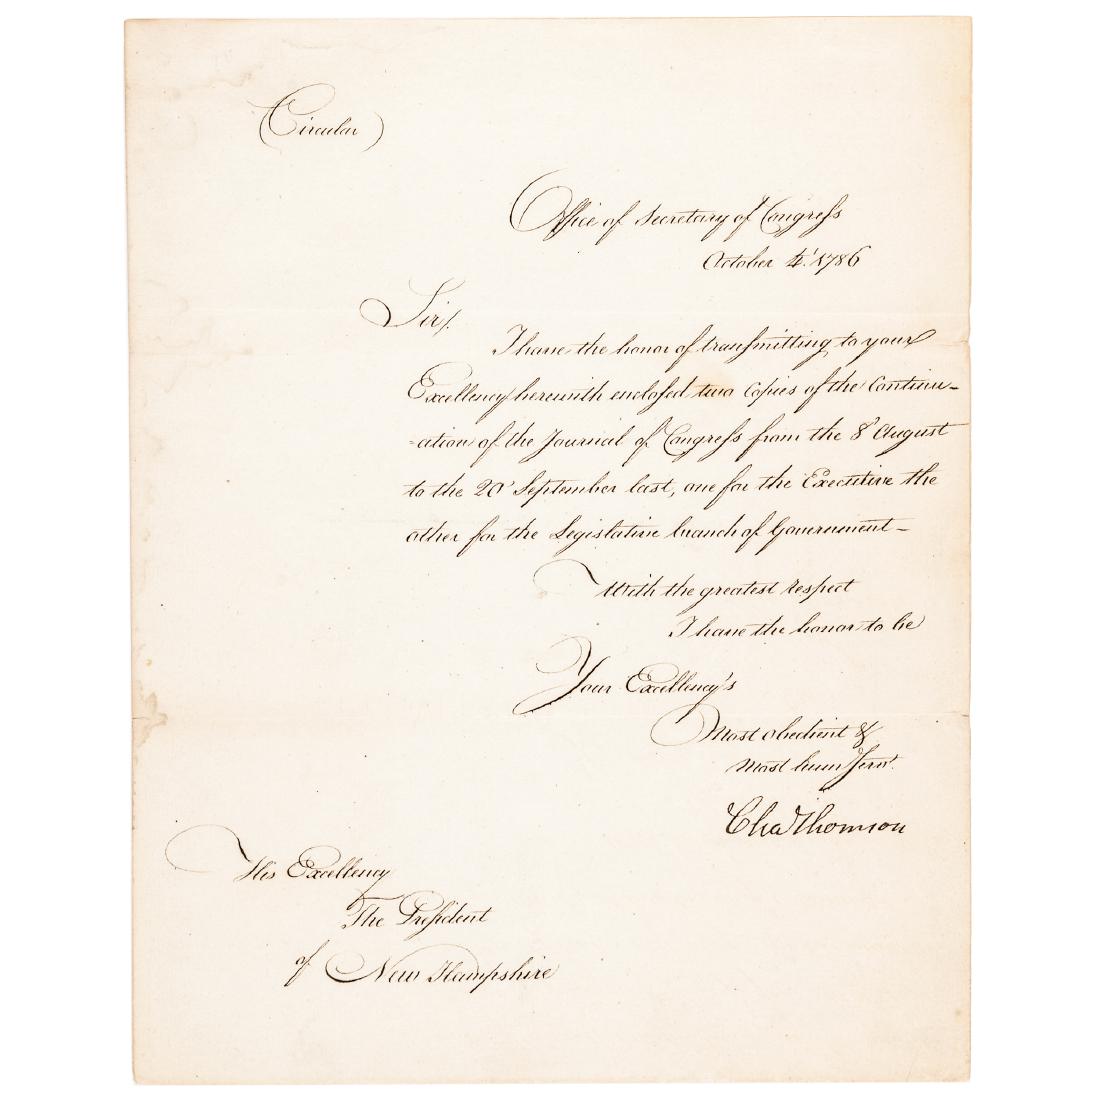 (Circular)
Office of Secretary of Congreſs
October 4.' 1786
Sir/.
I have the honor of tranſmitting to your
Excellency herewith encloſed two Copies of the Continu-
-ation of the Journal of Congreſs from the 8' August
to the 20' September last, one for the Executive the
other for the Legislative branch of Government-
With the greatest respect
I have the honor to be
Your Excellency's
Most obedient &
Most hum Servt.
Cha Thomson
His Excellency
The Preſident
of New Hampshire